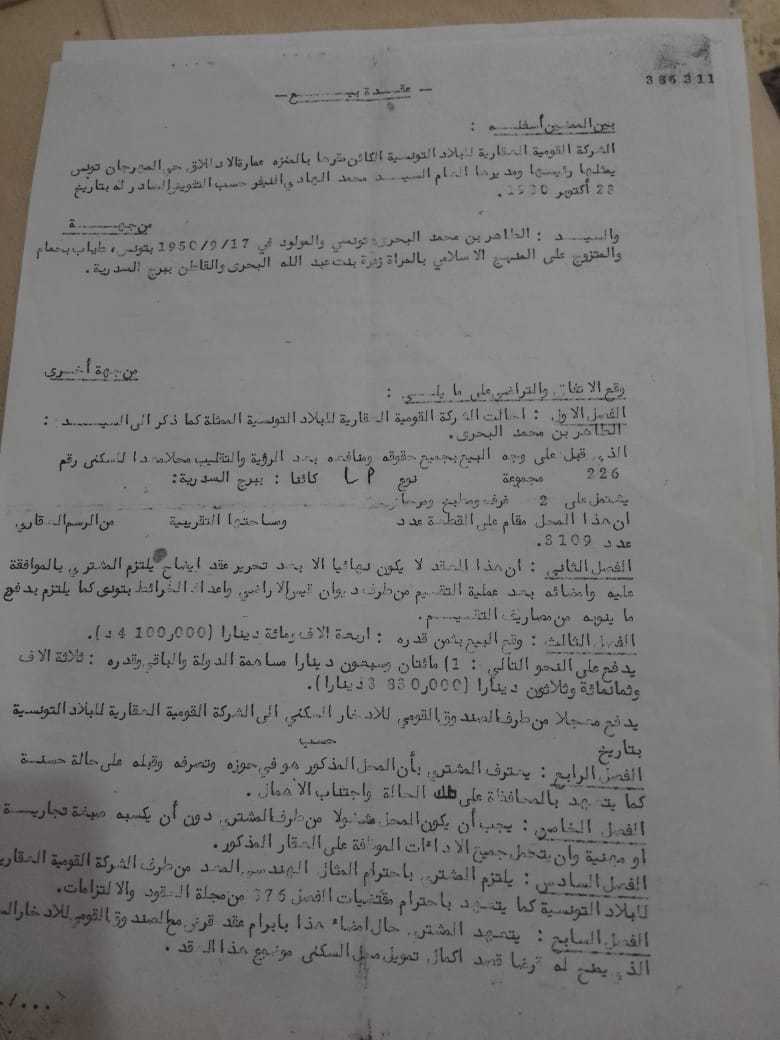 386311
- عقدة بيـــع -
بين الممضين أسفلـه :
الشركة القومية العقارية للبلاد التونسية الكائن مقرها بالمنزه عمارة الاد اللاق حي المهرجان تونس
يمثلها رئيسها ومديرها العام السيـد محمد الهادي النيفر حسب التفويض الصادر له بتاريخ
28 أكتوبر 1980 .
من جهـــة
والسيـــد : الطاهر بن محمد البحري تونسي والمولود في 1950/9/17 بتونس ، بحمام
والمتزوج على المنهج الاسلامي بالمراة زهرة بنت عبد الله البحرى والقاطن ببرج السدرية .
من جهة أخـرى
وقع الاتفاق والتراضي على ما يلـــي :
الفصل الاول : احالت الشركة القومية العقارية للبلاد التونسية الممثلة كما ذكر الى السيـــد :
الطاهر بن محمد البحرى .
الذي قبل على وجه البيع بجميع حقوقه ومنافعه بعد الرؤية والتقليب محلا معدا للسكنى رقم
226 مجموعة نوع LP كائنا : ببرج السدرية :
يشتمل على 2 غرف ومطبخ ومرحاض
ان هذا المحل مقام على القطعة عدد ومساحتها التقريبية من الرسم العقاري
عدد 8109 .
الفصل الثاني : ان هذا العقد لا يكون نهائيا الا بعد تحرير عقد ايضاح يلتزم المشتري بالموافقة
عليه وامضائه بعد عملية التقسيم من طرف ديوان قيس الاراضي واعداد الخرائط بتونس كما يلتزم بدفع
ما ينوبه من مصاريف التقسيـم .
الفصل الثالث : وقع البيع بثمن قدره : اربعة الاف ومائة دينارا (4 100,000 د) .
يدفع على النحو التالي : 1) مائتان وسبعون دينارا مساهمة الدولة والباقي وقدره : ثلاثة الاف
وثمانمائة وثلاثون دينارا (3 830,000 دينارا) .
يدفع معجلا من طرف الصندوق القومي للادخار السكني الى الشركة القومية العقارية للبلاد التونسية
حسب
بتاريخ
الفصل الرابع : يعترف المشتري بأن المحل المذكور هو في حوزه وتصرفه وقبله على حالة حسنـة
كما يتعهد بالمحافظة على تلك الحالة واجتناب الاهمال .
الفصل الخامس : يجب أن يكون المحل مشغولا من طرف المشتري دون أن يكسبه صبغة تجاريـة
او مهنية وان يتحمل جميع الاداءات الموظفة على العقار المذكور .
الفصل السادس : يلتزم المشتري باحترام المثال الهندسي المعد من طرف الشركة القومية العقارية
للبلاد التونسية كما يتعهد باحترام مقتضيات الفصل 376 من مجلة العقود والالتزامات .
الفصل السابع : يتعهد المشتري حال امضاء هذا بابرام عقد قرض مع الصندوق القومي للادخار
الذي يمنح له قرضا قصد اكمال تمويل محل السكنى موضوع هذا العقد .
/...